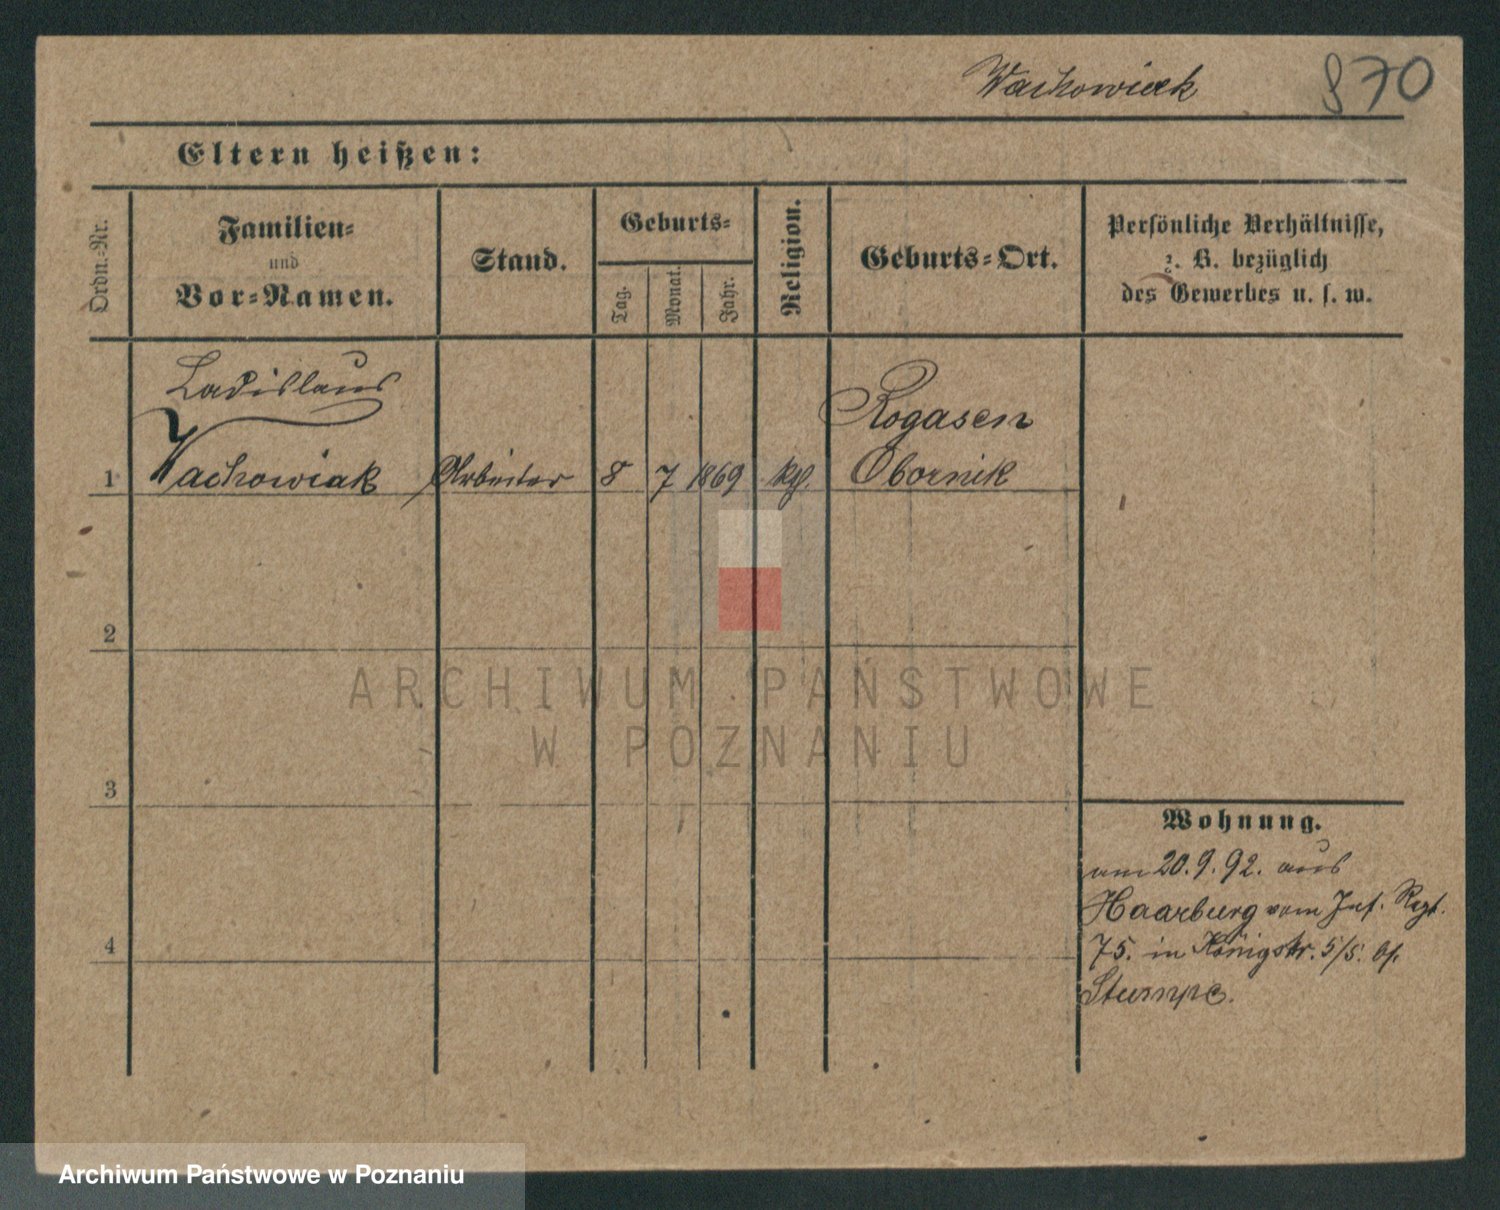 Wachowiak
870
Eltern heißen:
Ordn.-Nr.
Familien-
und
Vor-Namen.
Stand.
Geburts-
Tag.
Monat.
Jahr.
Religion.
Geburts-Ort.
Persönliche Verhältnisse,
z. B. bezüglich
des Gewerbes u. s. w.
Ladislaus
Rogasen
1 Wachowiak Arbeiter 8 7 1869 kth. Obornik
2
ARCHIWUM PAŃSTWOWE
W POZNANIU
3
Wohnung.
am 20.9.92. aus
Haarburg vom Inf. Regt.
4
75. in Königstr. 5/5. bf.
Stumpe.
Archiwum Państwowe w Poznaniu